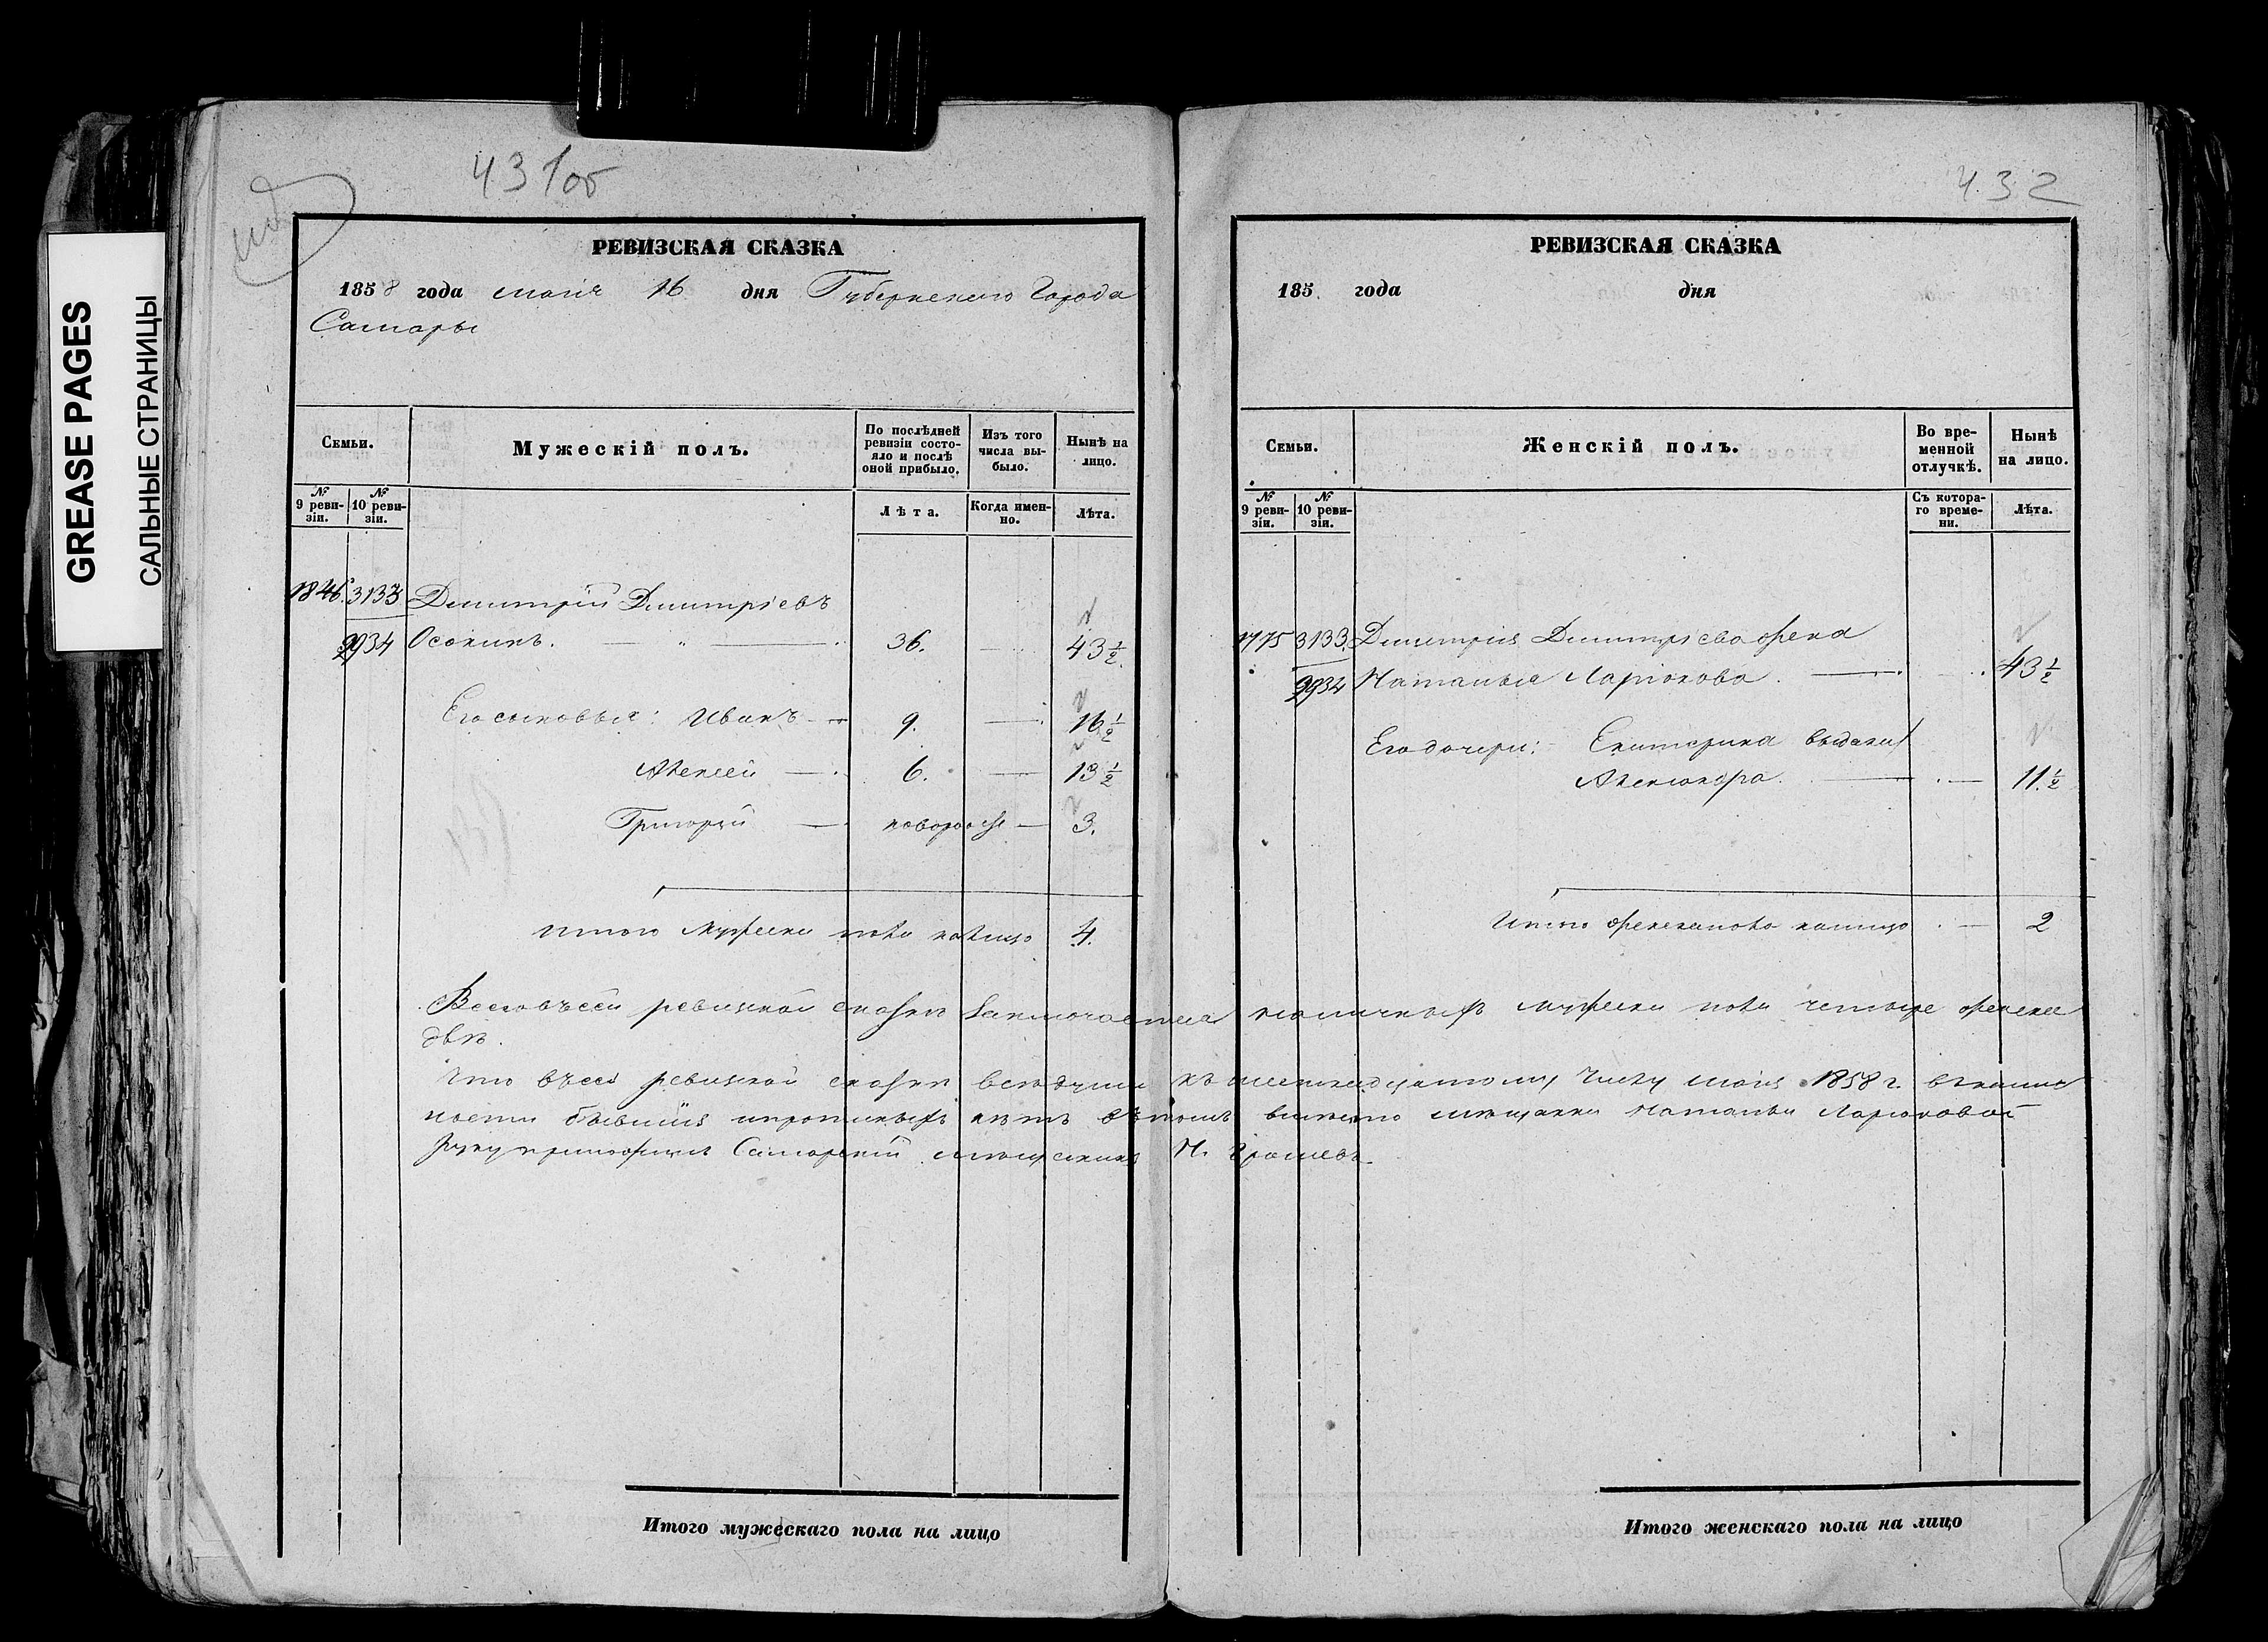 GREASE PAGES
САЛЬНЫЕ СТРАНИЦЫ
431об
РЕВИЗСКАЯ СКАЗКА
1858 года маія 16 дня Губернскаго Города
Самары
Семьи.
Мужескій полъ.
По послѣдней ревизіи состояло и послѣ оной прибыло.
Изъ того числа выбыло.
Нынѣ на лицо.
№ 9 ревизіи.
№ 10 ревизіи.
Лѣта.
Когда именно.
Лѣта.
1846. 3133 Димитрій Димитріевъ
9934 Осокинъ. 36. 43½.
Его сыновья: Иванъ 9. 16½
Алексей 6. 13½
Григорій новорож 3.
Итого мужеска пола налицо 4.
Итого мужескаго пола на лицо
432
РЕВИЗСКАЯ СКАЗКА
185 года дня
Семьи.
Женскій полъ.
Во временной отлучкѣ.
Нынѣ на лицо.
№ 9 ревизіи.
№ 10 ревизіи.
Съ котораго времени.
Лѣта.
1775 3133. Димитрія Димитріева жена
9934 Наталья Ларіонова. 43½
Его дочери: Екатерина выдана
Александра. 11½
Итого женска пола налицо 2
Всего въ сей ревизкой сказки заключается наличныхъ мужска пола четыре женска
двѣ.
Что въ сей ревизкой сказки всѣ души къ шестнадцатому числу маія 1858 г. в налич
ности бывшия и прописныхъ нѣтъ въ томъ вместо мещанки Натальи Ларионовой
руку приложилъ Самарский мещанинъ И.